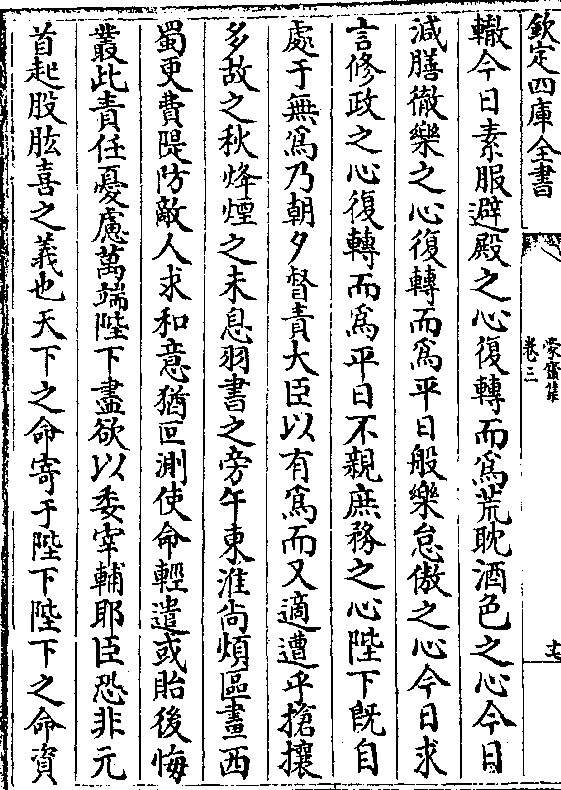 欽定四庫全書
蒙齋集
卷三
轍今日素服避殿之心復轉而為荒耽酒色之心今日
減膳徹樂之心復轉而為平日般樂怠傲之心今日求
言修政之心復轉而為平日不親庶務之心陛下既自
處于無為乃朝夕督責大臣以有為而又適遭乎搶攘
多故之秋烽煙之未息羽書之旁午東淮尚煩區畫西
蜀更費隄防敵人求和意猶叵測使命輕遣或貽後悔
叢此責任憂慮萬端陛下盡欲以委宰輔耶臣恐非元
首起股肱喜之義也天下之命寄于陛下陛下之命資